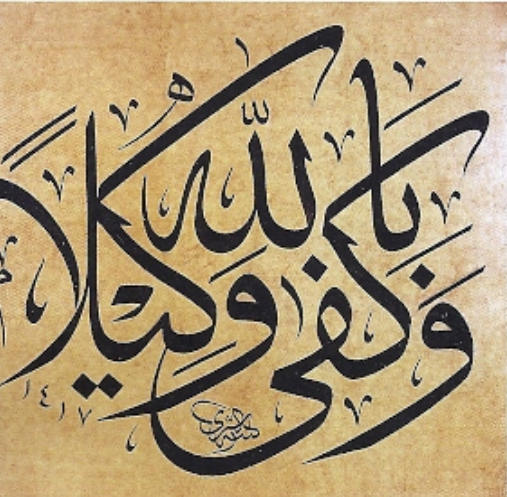 وكفى بالله وكيلا
١٤١٧